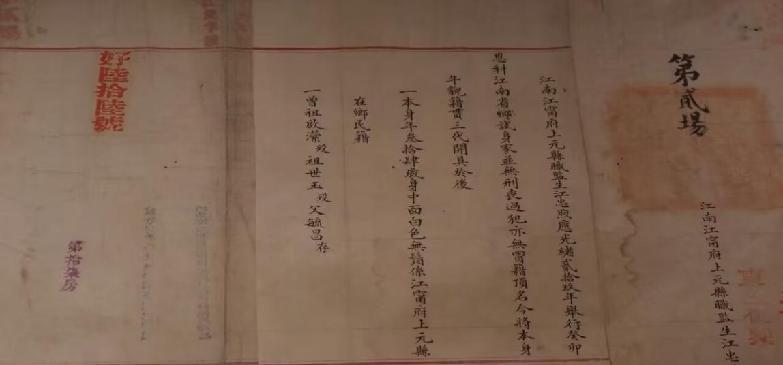 第貳場
江南江甯府上元縣職監生江忠
江南江甯府上元縣職監生江忠 應光緒貳拾玖年舉行癸卯
恩科江南省鄉試身家並無刑喪過犯亦無冒籍頂名今將本身
年貌籍貫三代開具於後
一本身年叁拾肆歲身中面白色無鬚係江甯府上元縣
在鄉民籍
一曾祖啟瀠歿祖世玉歿父毓昌存
好陸拾陸號
第拾柒房